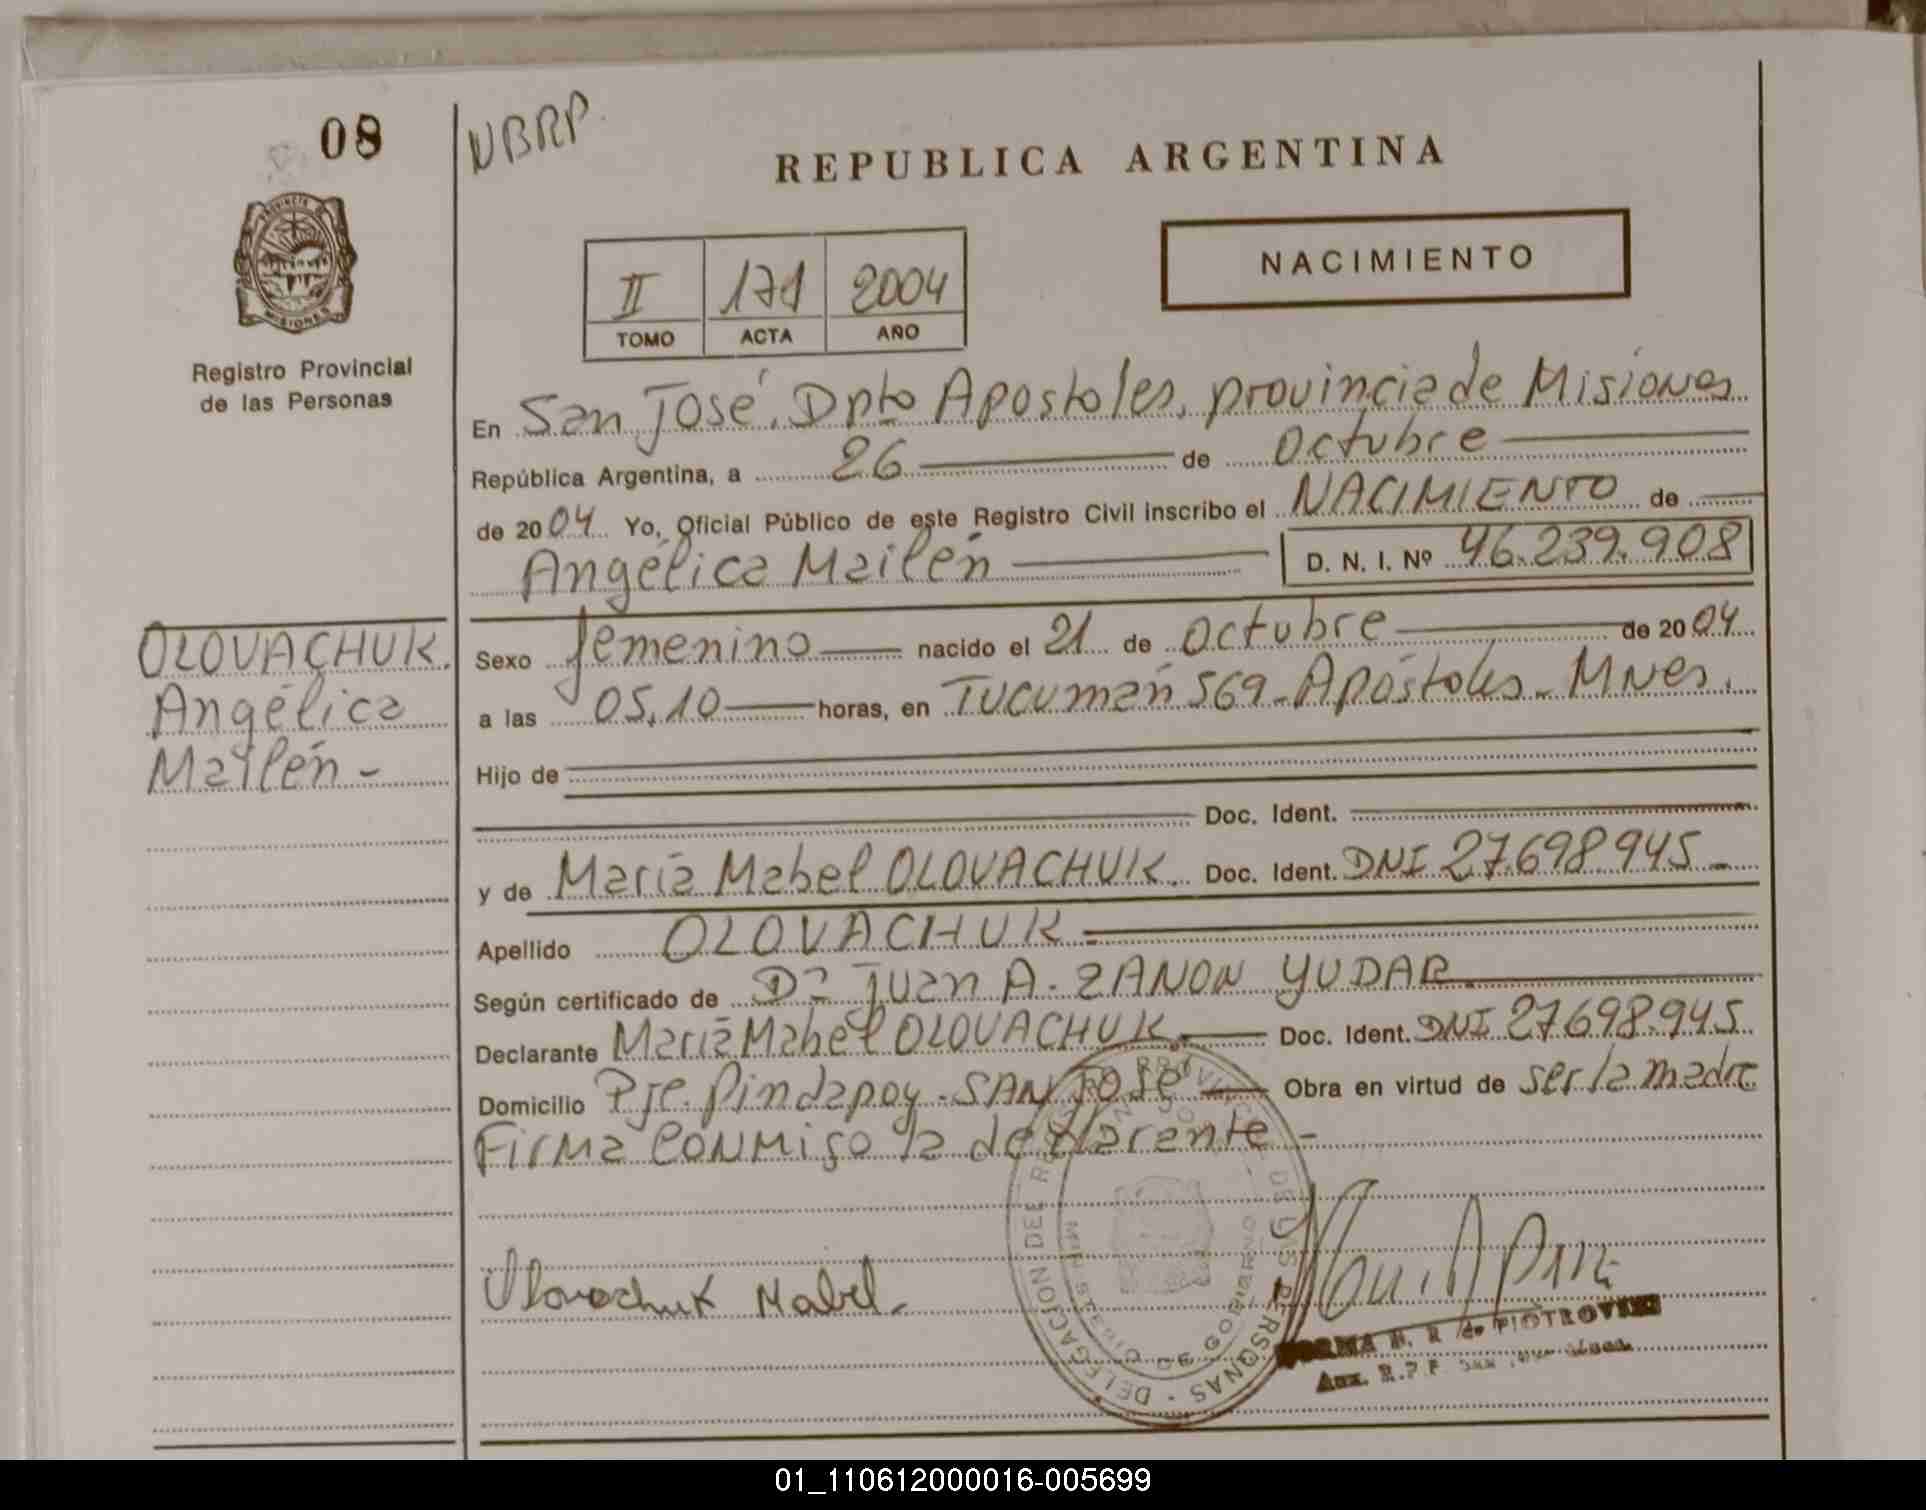 08
NBRP.
REPUBLICA ARGENTINA
PROVINCIA DE
MISIONES
Registro Provincial
de las Personas
II 171 2004
TOMO ACTA AÑO
NACIMIENTO
En San José, Dpto Apostoles, provincia de Misiones
República Argentina, a 26 de Octubre
de 2004 Yo, Oficial Público de este Registro Civil inscribo el NACIMIENTO de
Angélica Mailén D. N. I. Nº 46.239.908
OLOVACHUK.
Angélica
Mailén -
Sexo femenino nacido el 21 de Octubre de 2004
a las 05,10 horas, en Tucumán 569 - Apóstoles - Mnes.
Hijo de
Doc. Ident.
y de María Mabel OLOVACHUK. Doc. Ident. DNI 27.698.945 -
Apellido OLOVACHUK -
Según certificado de Dr Juan A. ZANON YUDAR
Declarante María Mabel OLOVACHUK. Doc. Ident. DNI 27.698.945
Domicilio Pje. Pindapoy - SAN JOSE Obra en virtud de ser la madre
Firma conmigo la declarante -
Olovachuk Mabel.
DELEGACION DEL REGISTRO PROVINCIAL DE LAS PERSONAS
MINISTERIO DE GOBIERNO
NORMA B. R. de PIOTROVSKI
Aux. R.P.P. SAN JOSE
01_110612000016-005699